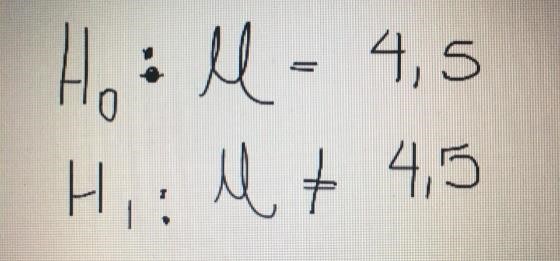 H₀: μ = 4,5
H₁: μ ≠ 4,5